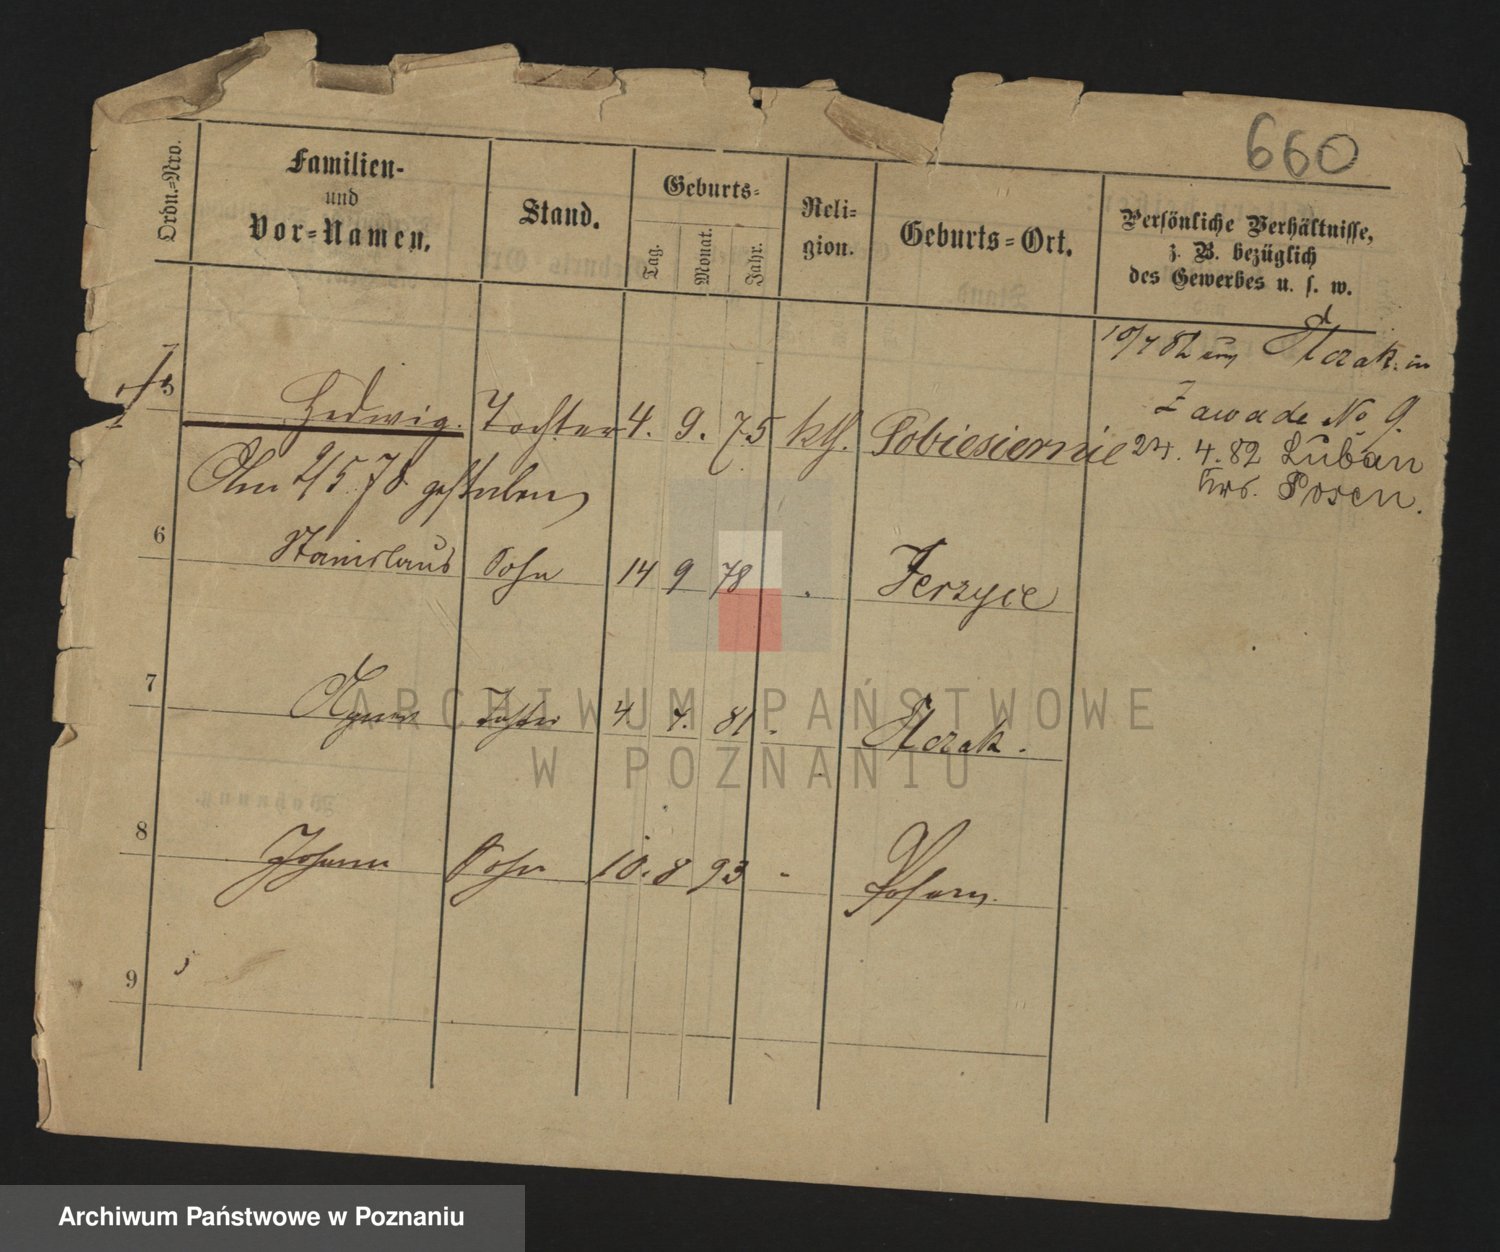 660
Ordn.-Nro.
Familien-
und
Vor-Namen.
Stand.
Geburts-
Tag.
Monat.
Jahr.
Reli-
gion.
Geburts-Ort.
Persönliche Verhältnisse,
z. B. bezüglich
des Gewerbes u. s. w.
10/4 82
in
Zawade No 9.
5 Hedwig. Tochter 4. 9. 75 kth. Pobiesiernie
24. 4. 82 Luban
Krs. Posen.
Am 2/5. 78 gestorben
6 Stanislaus Sohn 14 9 78 Jerzyce
7 Agnes Tochter 4 4. 81 -
8 Johann Sohn 10. 8 93 - Posen.
9
ARCHIWUM PAŃSTWOWE
W POZNANIU
Archiwum Państwowe w Poznaniu